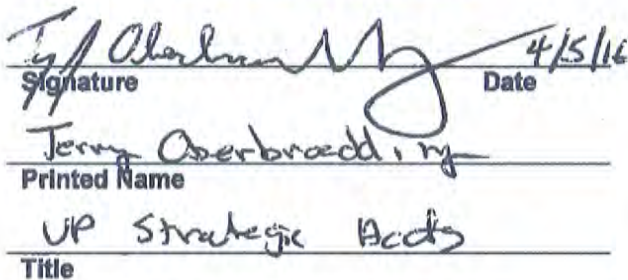 4/5/16
Signature Date
Jerry Oberbroeckling
Printed Name
VP Strategic Accts
Title